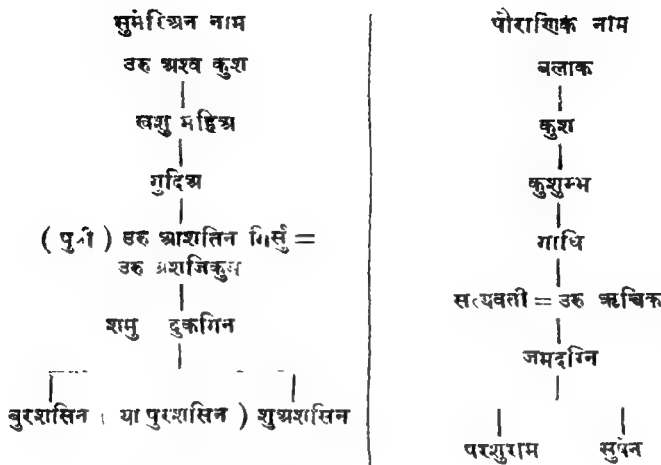 सुमेरिअन नाम
उरु अश्व कुश
खशु महिअ
गुदिअ
( पुत्री ) उरु आशतिन गिर्सु =
उरु अशजिकुम
शमु दुकगिन
बुरशसिन ( या पुरशसिन ) शुअशसिन
पौराणिक नाम
बलाक
कुश
कुशुम्भ
गाधि
सत्यवती = उरु ऋचिक
जमदग्नि
परशुराम सुषेन